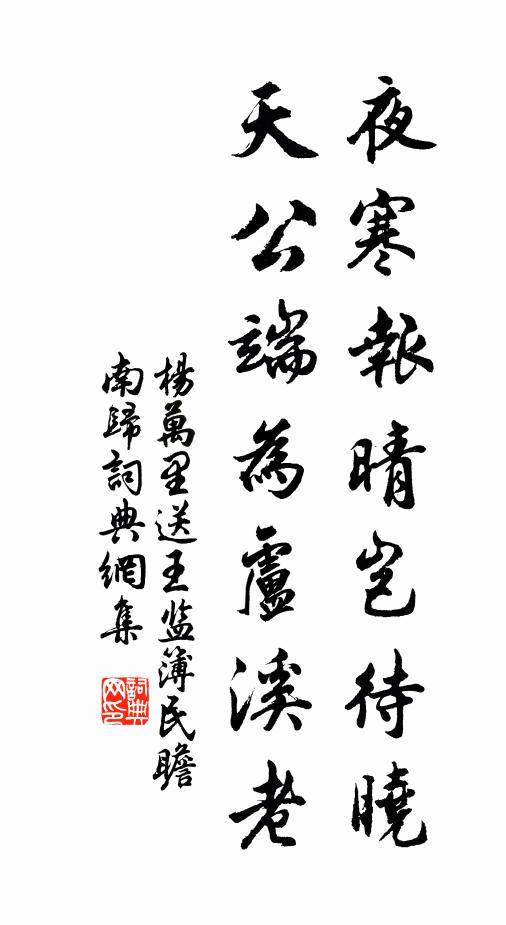 夜寒報晴豈待曉
天公端為盧溪老
楊萬里送王監簿民瞻
南歸詞典網集
詞典
网印